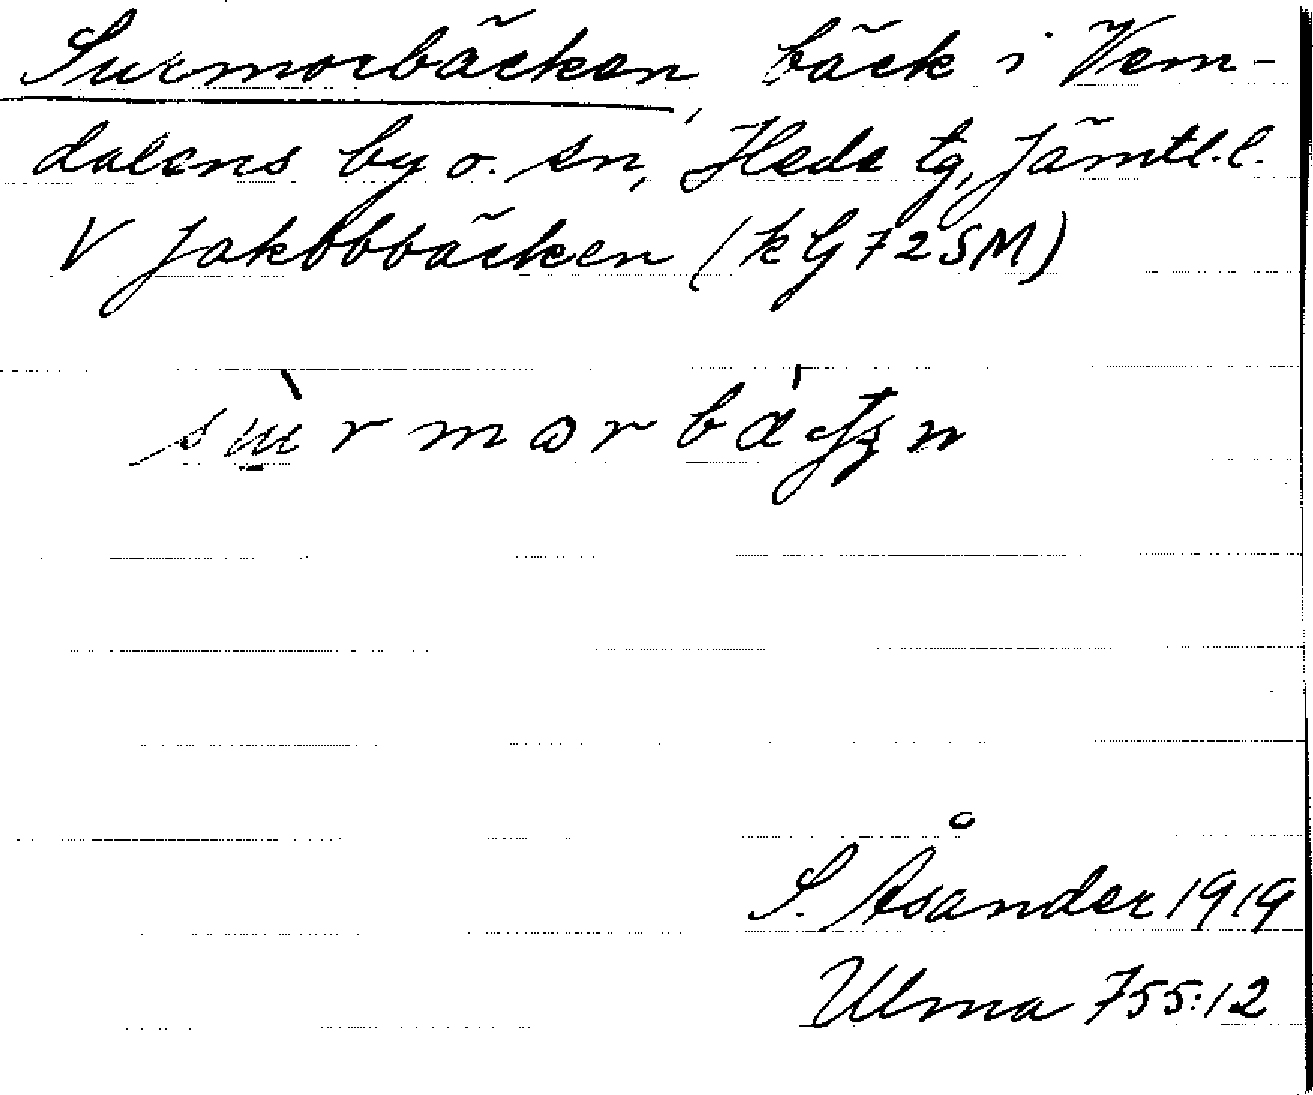 Surmorbäcken, bäck i Vem-
dalens by o. sn, Hede tg, Jämtl. l.
V Jakobbäcken (kG 72 SM)
S. Åsander 1919
Ulma 755:12